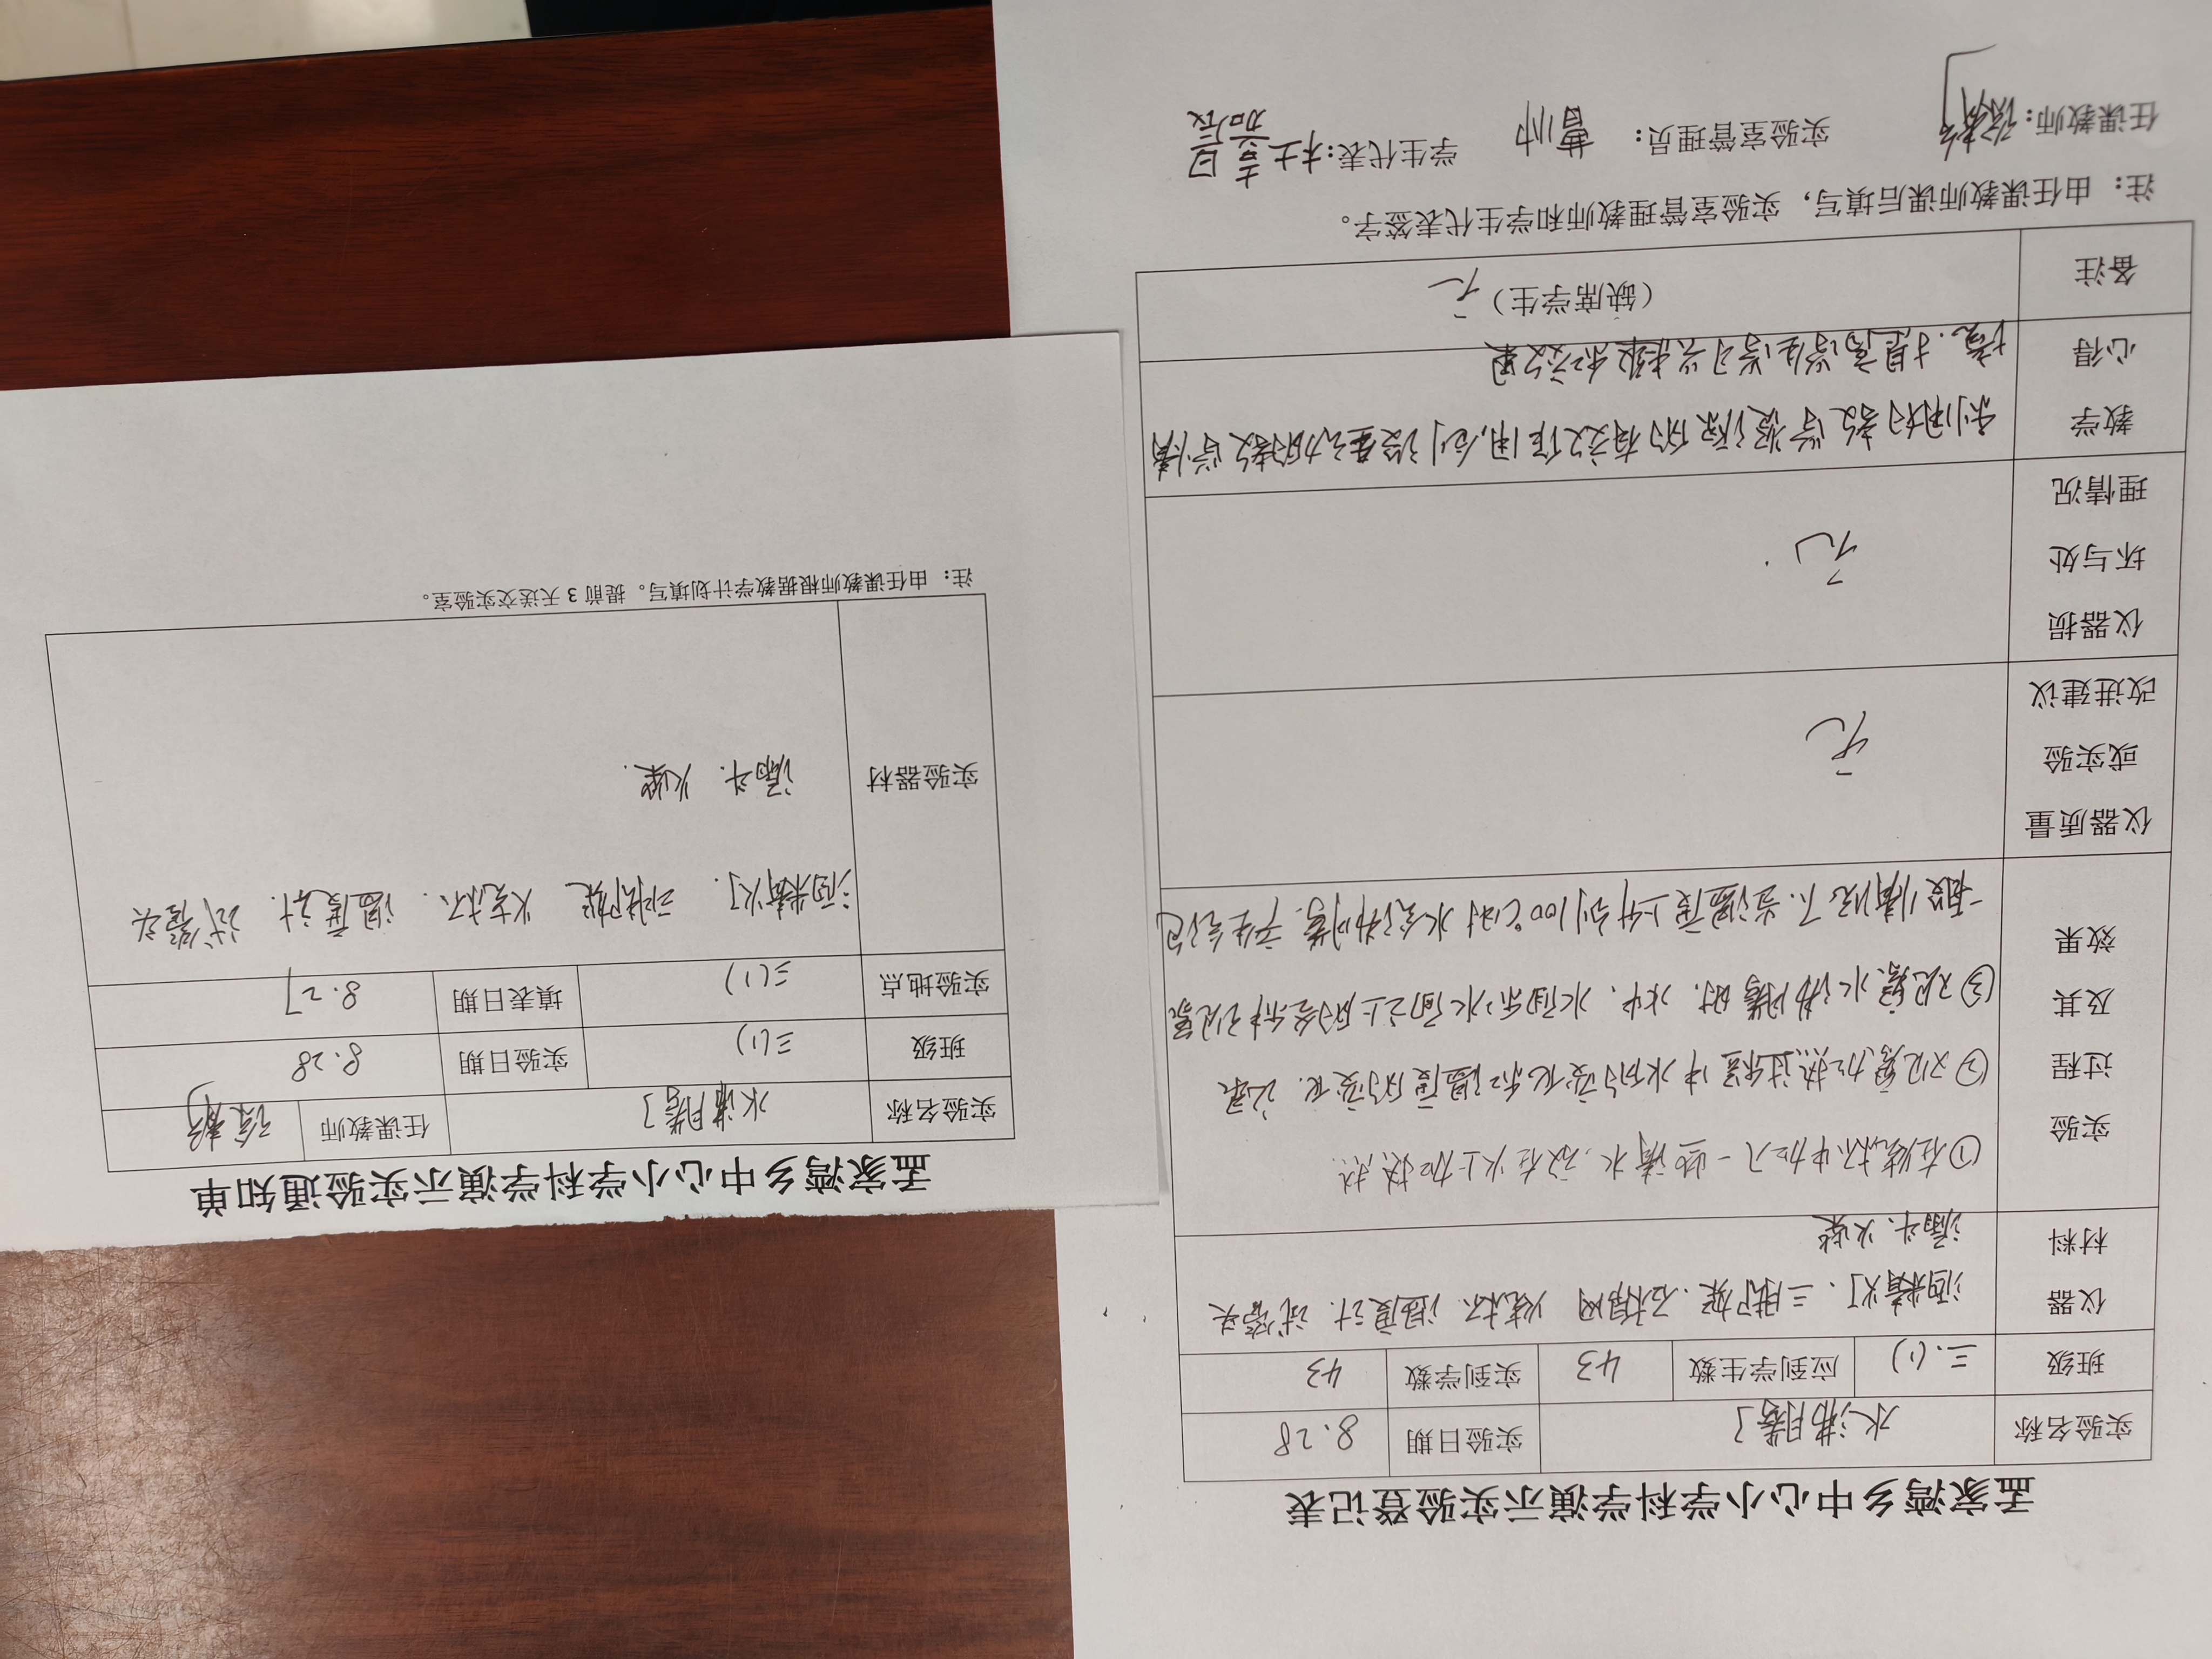 孟家湾乡中心小学科学演示实验登记表
实验名称 水沸腾了 实验日期 8.28
班级 三.(1) 应到学生数 43 实到学数 43
仪器材料 酒精灯、三脚架、石棉网 烧杯 温度计 试管夹
漏斗、火柴
实验过程及其效果 ①在烧杯中加入一些清水,放在火上加热
②观察加热过程中水的变化和温度的变化、记录
③观察水沸腾时、水中、水面和水面之上的各种现象
一般情况下、当温度上升到100℃时水会沸腾 产生气泡
仪器质量或实验改进建议 无
仪器损坏与处理情况 无
教学心得 利用好教学资源的有效作用,创设生动的教学情
境、提高学生学习兴趣和效果
备注 (缺席学生) 无
注:由任课教师课后填写,实验室管理教师和学生代表签字。
任课教师: 实验室管理员: 曹帅 学生代表:
孟家湾乡中心小学科学演示实验通知单
实验名称 水沸腾了 任课教师
班级 三(1) 实验日期 8.28
实验地点 三(1) 填表日期 8.27
实验器材 酒精灯、三脚架 烧杯、温度计、试管夹
漏斗、火柴、
注:由任课教师根据教学计划填写。提前 3 天送交实验室。